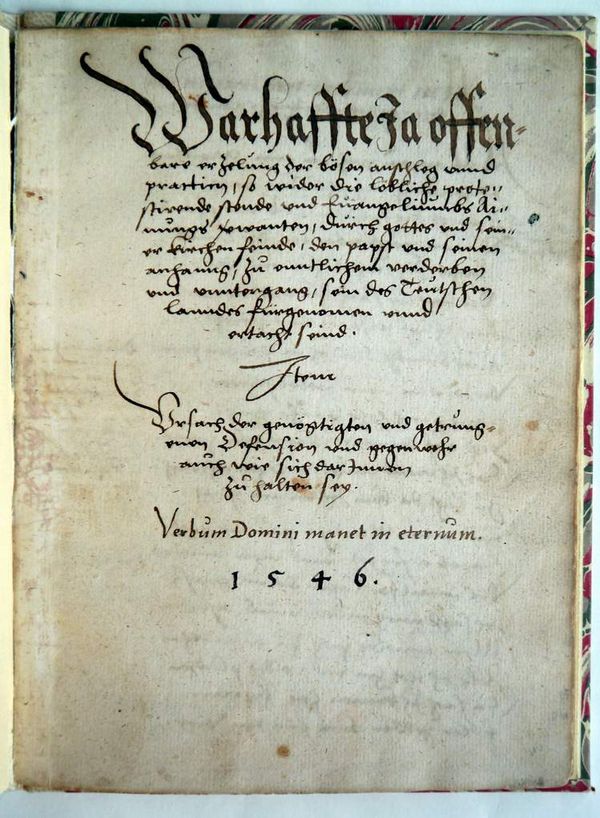 Warhaffte Ja offen-
bare erzelung der bösen anschleg unnd
practicn, so wider die löbliche prote-
stirende stende und Euangeliumbs Ai-
nungs verwanten, durch gottes und sein-
er kirchen feinde, den papst und seinen
anhanng, zu enntlichem verderben
und unntergang, sein des Teutschen
lanndes fürgenomen unnd
ertacht seind.
Item
Ursach der genöttigten und getrung-
enen Defension und gegenwehr
auch wie sich darInnen
zu halten sey.
Verbum Domini manet in eternum.
1 5 4 6.